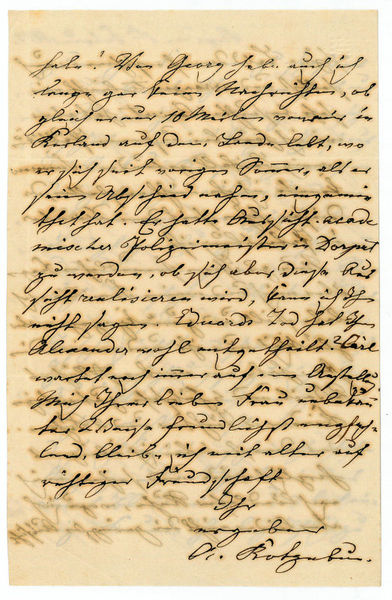 habe! Von Georg habe auch ich
lange gar keine Nachrichten, ob
gleich er nur 10 Meilen von mir in
Kurland auf dem Lande lebt, wo
er sich seit vorigem Sommer, als er
seinen Abschied nahm, eingemie
thet hat. Er hatte Aussicht acade
mischer Polizeimeister in Dorpat
zu werden, ob sich aber diese Aus
sicht realisieren wird, kann ich Ihnen
nicht sagen. Eduards Tod hat Ihnen
Alexander wohl mitgetheilt? Carl
wartet noch immer auf eine Anstellung
Mich Ihrer lieben Frau unbekann
ter Weise freundlichst empfeh
lend, bleibe ich mit alter auf
richtiger Freundschaft
Ihr
ergebener
Kotzebue.